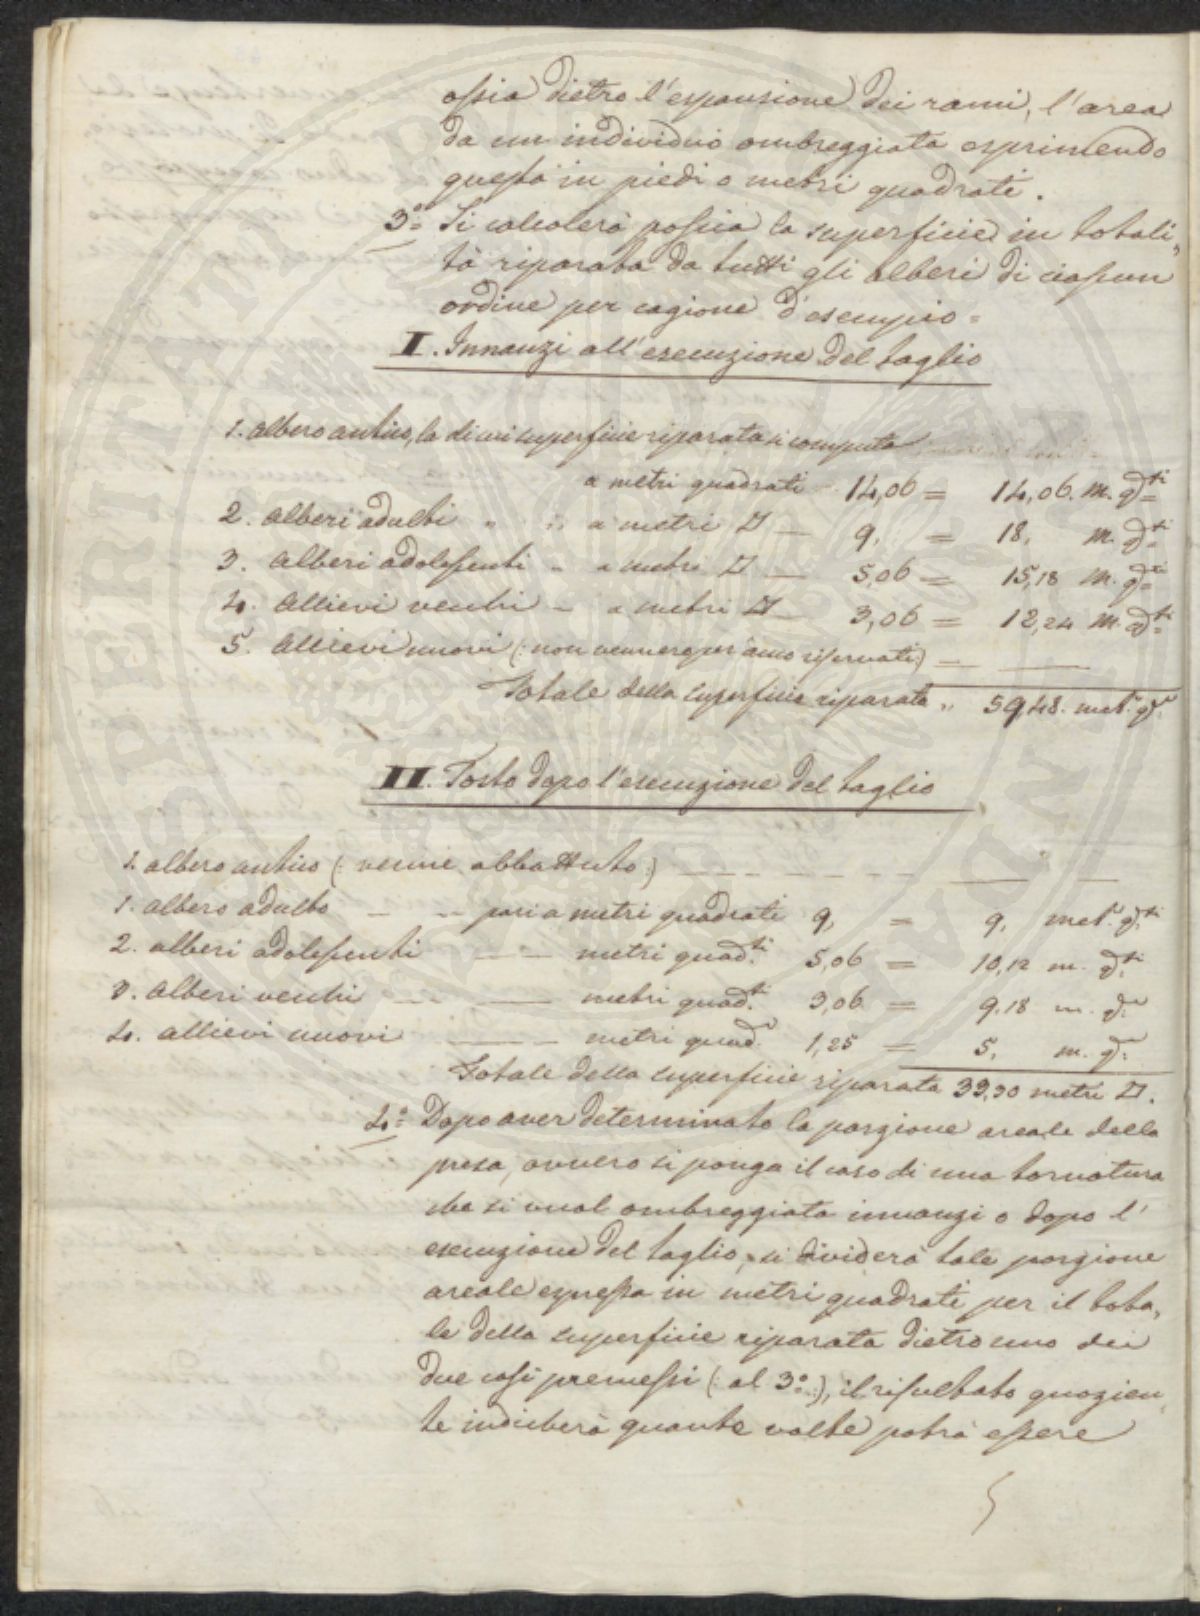 ossia dietro l'espansione dei rami, l'area
da un individuo ombreggiata esprimendo
questa in piedi o metri quadrati.
3.° Si calcolerà possia la superficie in totali,
tà riparata da tutti gli alberi di ciascun
ordine per cagione d'esempio =
I. Innanzi all'esecuzione del taglio
1. albero antico, la di cui superficie riparata si computa
a metri quadrati 14,06 = 14,06. m. q.ti
2. alberi adulti " " a metri □ — 9, = 18, m. q.ti
3. alberi adolescenti - a metri □ — 5,06 = 15,18 m. q.ti
4. allievi vecchi - a metri □ — 3,06 = 12,24 m. q.ti
5. allievi nuovi (: non vennero per anco riservati :) — —
Totale della superficie riparata " 59,48. met. q.
II. Tosto dopo l'esecuzione del taglio
1. albero antico (: venne abbattuto :) — — — — —
1. albero adulto — — pari a metri quadrati 9, = 9, met. q.ti
2. alberi adolescenti — — metri quad.ti 5,06 = 10,12 m. q.ti
3. alberi vecchi — — metri quad.ti 3,06 = 9,18 m. q.
4. allievi nuovi — — metri quad. 1,25 = 5, m. q.
Totale della superficie riparata 33,30 metri □.
4.° Dopo aver determinato la porzione areale della
presa, ovvero si ponga il caso di una tornatura
che si vuol ombreggiata innanzi o dopo l'
esecuzione del taglio, si dividerà tale porzione
areale espressa in metri quadrati per il tota,
le della superficie riparata dietro uno dei
due casi premessi (: al 3.° :), il risultato quozien,
te indicherà quante volte potrà essere
SPERITAT PUBLICA